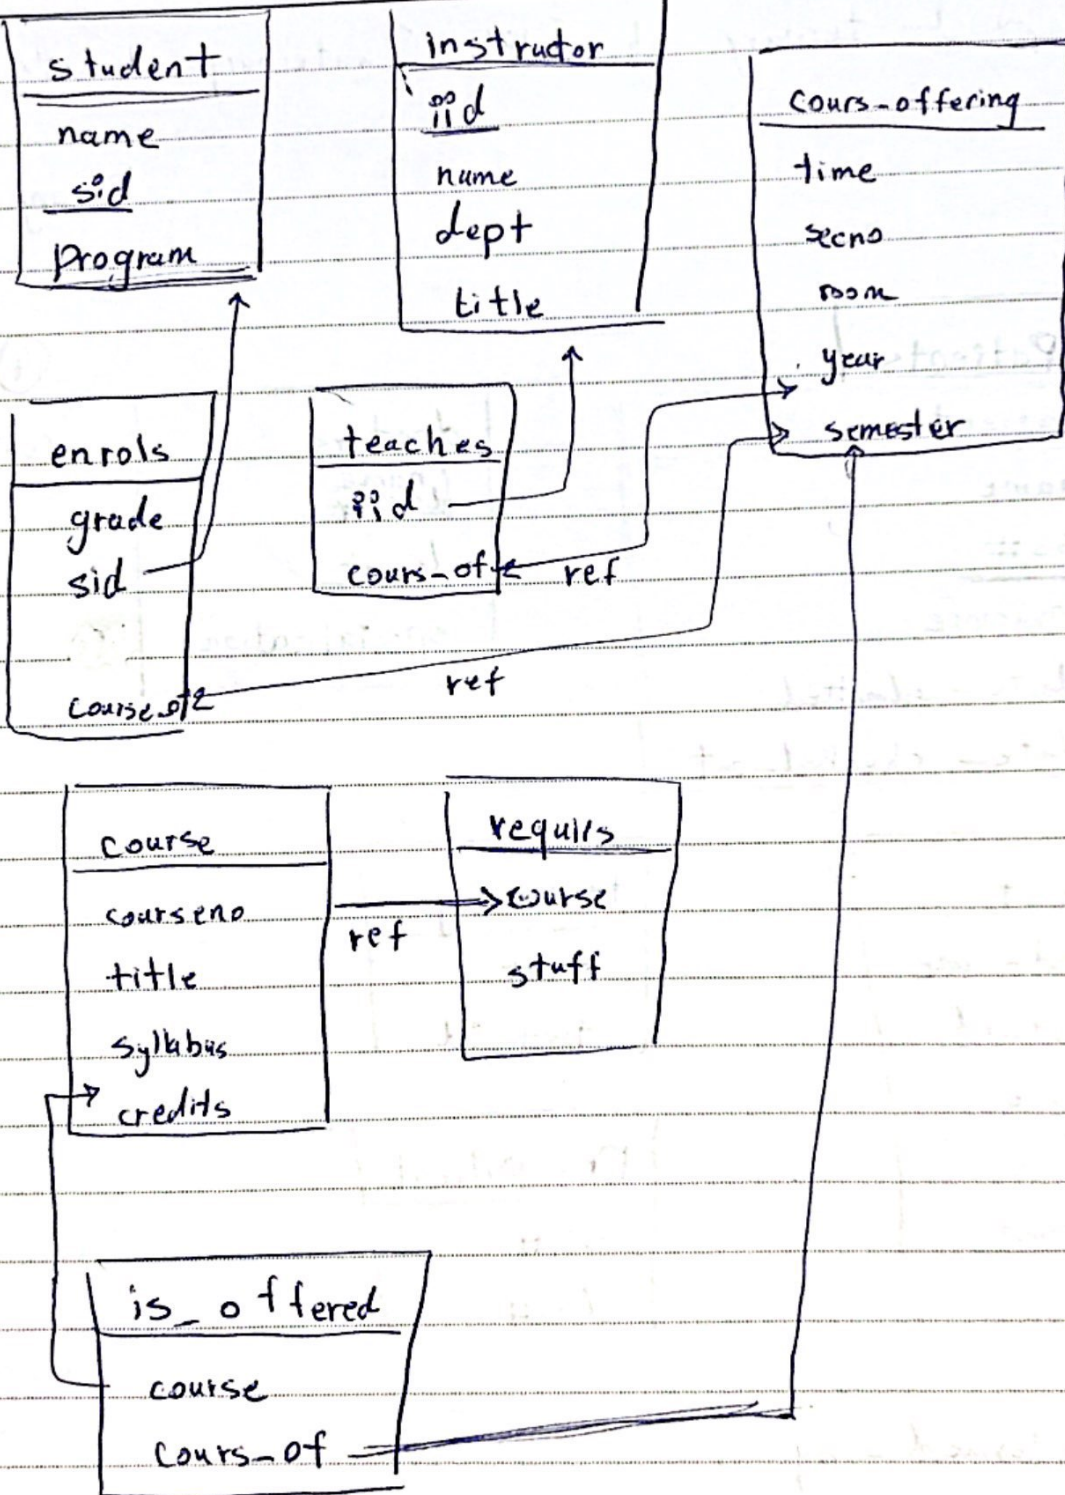 student
name
sid
program
instructor
iid
name
dept
title
cours-offering
time
secno
room
year
semester
enrols
grade
sid
course-of
teaches
iid
cours-of
ref
ref
course
courseno
title
syllabus
credits
ref
requirs
course
stuff
is_offered
course
cours-of